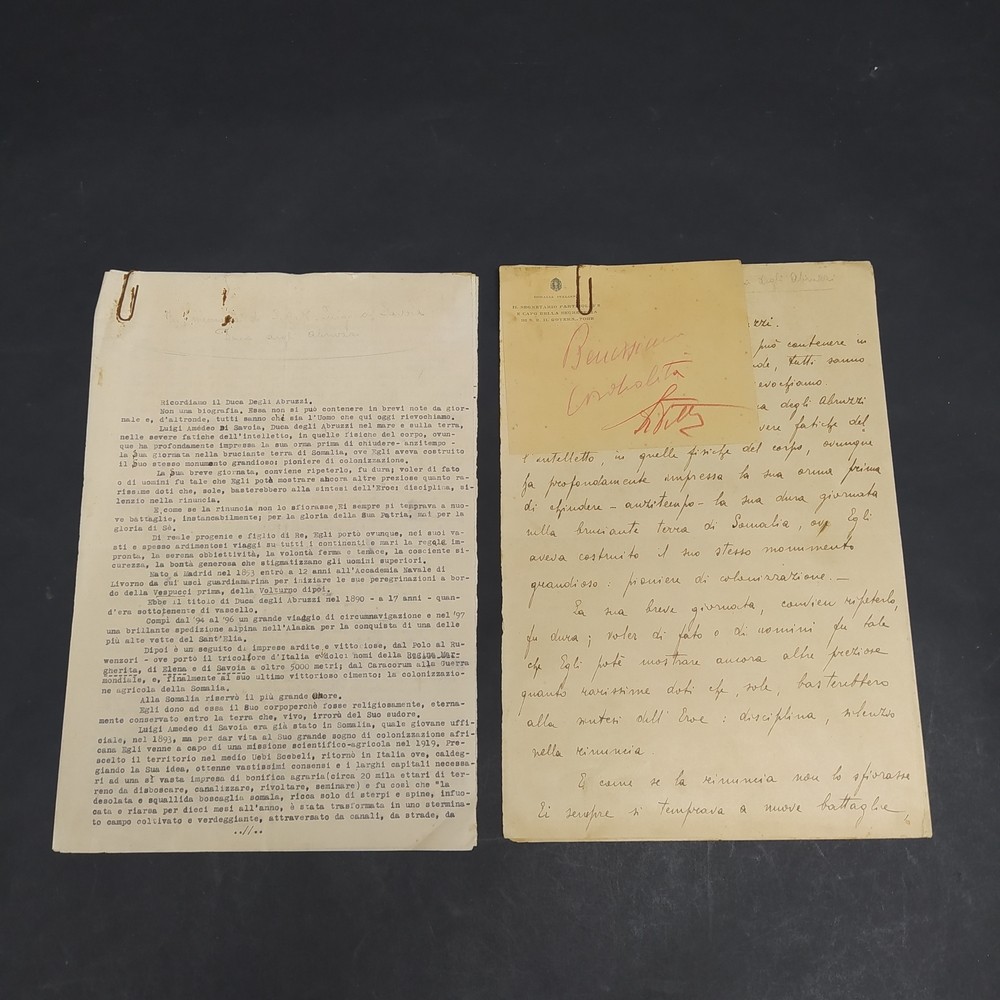 Ricordiamo il Duca Degli Abruzzi.
Non una biografia. Essa non si può contenere in brevi note da gior-
nale e, d'altronde, tutti sanno chi sia l'Uomo che qui oggi rievochiamo.
Luigi Amedeo Di Savoia, Duca degli Abruzzi nel mare e sulla terra,
nelle severe fatiche dell'intelletto, in quelle fisiche del corpo, ovun-
que ha profondamente impressa la sua orma prima di chiudere- anzitempo -
la sua giornata nella bruciante terra di Somalia, ove Egli aveva costruito
il suo stesso monumento grandioso: pioniere di colonizzazione.
La sua breve giornata, conviene ripeterlo, fu dura; voler di fato
o di uomini fu tale che Egli potè mostrare ancora altre preziose quanto ra-
rissime doti che, sole, basterebbero alla sintesi dell'Eroe: disciplina, si-
lenzio nella rinuncia.
E come se la rinuncia non lo sfiorasse, Ei sempre si temprava a nuo-
ve battaglie, instancabilmente; per la gloria della Sua Patria, mai per la
gloria di Sè.
Di reale progenie e figlio di Re, Egli portò ovunque, nei suoi va-
sti e spesso ardimentosi viaggi su tutti i continenti e mari la regale im-
pronta, la serena obbiettività, la volontà ferma e tenace, la cosciente si-
curezza, la bontà generosa che stigmatizzano gli uomini superiori.
Nato a Madrid nel 1873 entrò a 12 anni all'Accademia Navale di
Livorno da cui uscì guardiamarina per iniziare le sue peregrinazioni a bor-
do della Vespucci prima, della Volturno dipoi.
Ebbe il titolo di Duca degli Abruzzi nel 1890 - a 17 anni - quan-
d'era sottotenente di vascello.
Compì dal '94 al '96 un grande viaggio di circumnavigazione e nel '97
una brillante spedizione alpina nell'Alaska per la conquista di una delle
più alte vette del Sant'Elia.
Dipoi è un seguito di imprese ardite e vittoriose, dal Polo al Ru-
wenzori - ove portò il tricolore d'Italia e i dolci nomi della Regina Mar-
gherita, di Elena e di Savoia a oltre 5000 metri; dal Caracorum alla Guerra
mondiale, e, finalmente al suo ultimo vittorioso cimento: la colonizzazio-
ne agricola della Somalia.
Alla Somalia riservò il più grande onore.
Egli dono ad essa il Suo corpo perchè fosse religiosamente, eterna-
mente conservato entro la terra che, vivo, irrorò del Suo sudore.
Luigi Amedeo di Savoia era già stato in Somalia, quale giovane uffi-
ciale, nel 1893, ma per dar vita al Suo grande sogno di colonizzazione afri-
cana Egli venne a capo di una missione scientifico-agricola nel 1919. Pre-
scelto il territorio nel medio Uebi Scebeli, ritornò in Italia ove, caldeg-
giando la Sua idea, ottenne vastissimi consensi e i larghi capitali necessa-
ri ad una sì vasta impresa di bonifica agraria(circa 20 mila ettari di ter-
reno da disboscare, canalizzare, rivoltare, seminare) e fu così che "la
desolata e squallida boscaglia somala, ricca solo di sterpi e spine, infuo-
cata e riarsa per dieci mesi all'anno, è stata trasformata in uno stermina-
to campo coltivato e verdeggiante, attraversato da canali, da strade, da
..//..
IL SEGRETARIO PARTICOLARE
E CAPO DELLA SEGRETERIA
DI S. E. IL GOVERNATORE
Benissimo
Cordialità
degli Abruzzi
zzi.
può contenere in
de, tutti sanno
evochiamo.
a degli Abruzzi
vere fatiche del
l'intelletto in quelle fisiche del corpo, ovunque
ha profondamente impressa la sua orma prima
di chiudere - anzitempo - la sua dura giornata
nella bruciante terra di Somalia, ove Egli
aveva costruito il suo stesso monumento
grandioso: pioniere di colonizzazione. -
La sua breve giornata, convien ripeterlo,
fu dura; voler di fato o di uomini fu tale
che Egli potè mostrare ancora altre preziose
quanto rarissime doti che, sole, basterebbero
alla sintesi dell'Eroe: disciplina, silenzio
nella rinuncia.
E come se la rinuncia non lo sfiorasse
Ei sempre si temprava a nuove battaglie